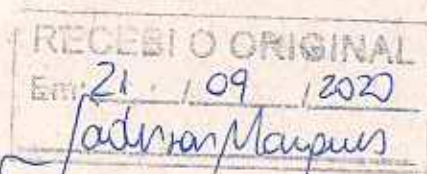 RECEBI O ORIGINAL
Em: 21 / 09 / 2020
Marques